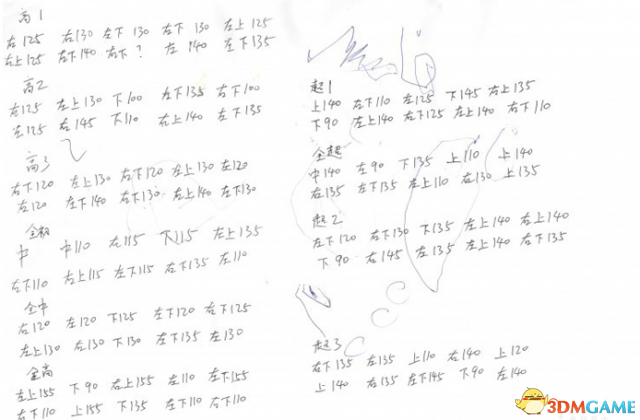 高1
右125 右130 左下130 右下130 左上125
右上125 左下140 右下? 左140 左下135
高2
右125 左上130 下100 左下135 右下100
左125 右145 下110 右上140 左下135
高3
右下120 左上130 右下120 左上130 左120
右120 左下140 右下130 右上140 左下130
全初
中 中110 右115 下115 左上135
左下110 右上115 左下115 右下135 左110
全中
右120 左120 下125 左下120 右下125
左上130 右130 下130 左下135 左130
全高
左上155 下90 右上155 左110 左下155
右下110 上155 下135 左下110 右下110
超1
上140 左下110 左125 下145 右上135
下90 左上140 右下125 左上140 右下110
全超
中140 左90 下135 上110 上140
右135 左下135 左上110 右130 上135
超2
左下120 右下130 下135 左上140 右上140
下90 右145 左135 左上140 右下135
超3
右下135 左135 上110 右140 上120
上140 右135 左下145 下90 左140
3DMGAME